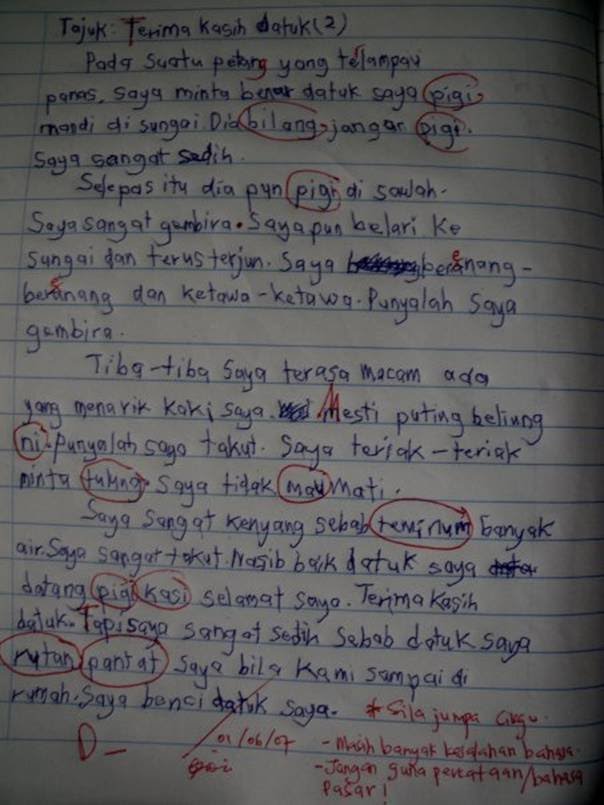 Tajuk: Terima Kasih datuk (2)
Pada suatu petang yang telampau
panas, saya minta benar datuk saya pigi
mandi di sungai. Dia bilang, jangan pigi.
Saya sangat sedih.
Selepas itu dia pun pigi di sawah.
Saya sangat gembira. Saya pun belari ke
sungai dan terus terjun. Saya berenang-
berenang dan ketawa-ketawa. Punyalah saya
gembira.
Tiba-tiba saya terasa macam ada
yang menarik kaki saya. Mesti puting beliung
ni. Punyalah saya takut. Saya teriak-teriak
minta tulung. Saya tidak mau mati.
Saya sangat kenyang sebab teminum banyak
air. Saya sangat takut. Nasib baik datuk saya
datang pigi kasi selamat saya. Terima kasih
datuk. Tapi saya sangat sedih sebab datuk saya
rutan pantat saya bila kami sampai di
rumah. Saya benci datuk saya.
* Sila jumpa cikgu.
D-
01/06/07
- Masih banyak kesalahan bahasa.
- Jangan guna perkataan/bahasa
pasar!